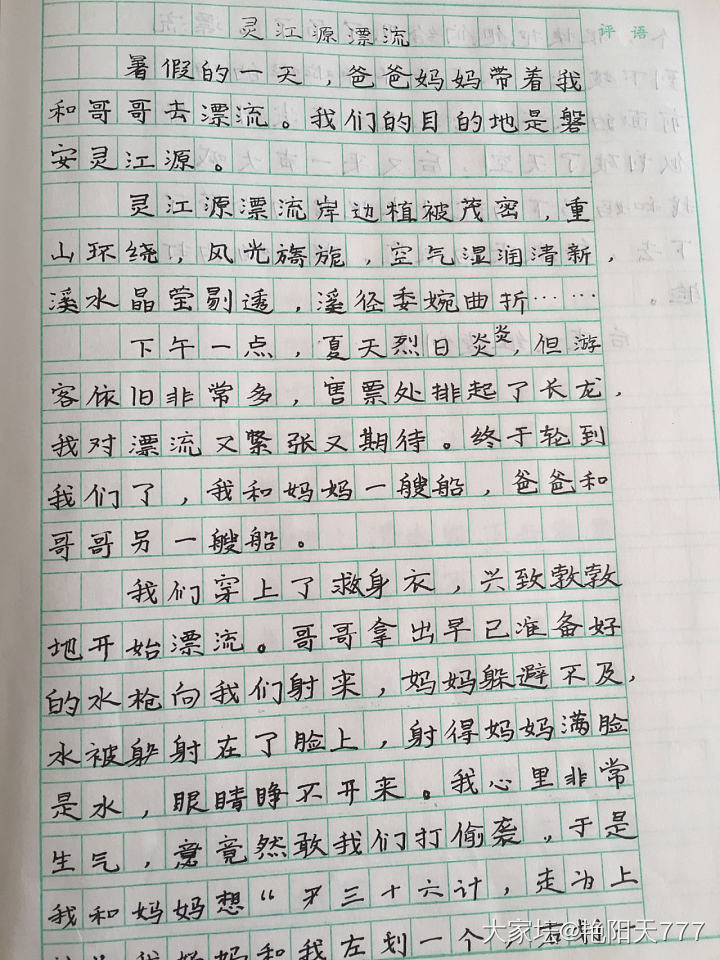 灵江源漂流
评语
暑假的一天，爸爸妈妈带着我
和哥哥去漂流。我们的目的地是磐
安灵江源。
灵江源漂流岸边植被茂密，重
山环绕，风光旖旎，空气湿润清新，
溪水晶莹剔透，溪径委婉曲折……
下午一点，夏天烈日炎炎，但游
客依旧非常多，售票处排起了长龙，
我对漂流又紧张又期待。终于轮到
我们了，我和妈妈一艘船，爸爸和
哥哥另一艘船。
我们穿上了救身衣，兴致勃勃
地开始漂流。哥哥拿出早已准备好
的水枪向我们射来，妈妈躲避不及，
水被射在了脸上，射得妈妈满脸
是水，眼睛睁不开来。我心里非常
生气，竟然敢我们打偷袭，于是
我和妈妈想“三十六计，走为上
我妈妈和我左划一个
大家坛@艳阳天777